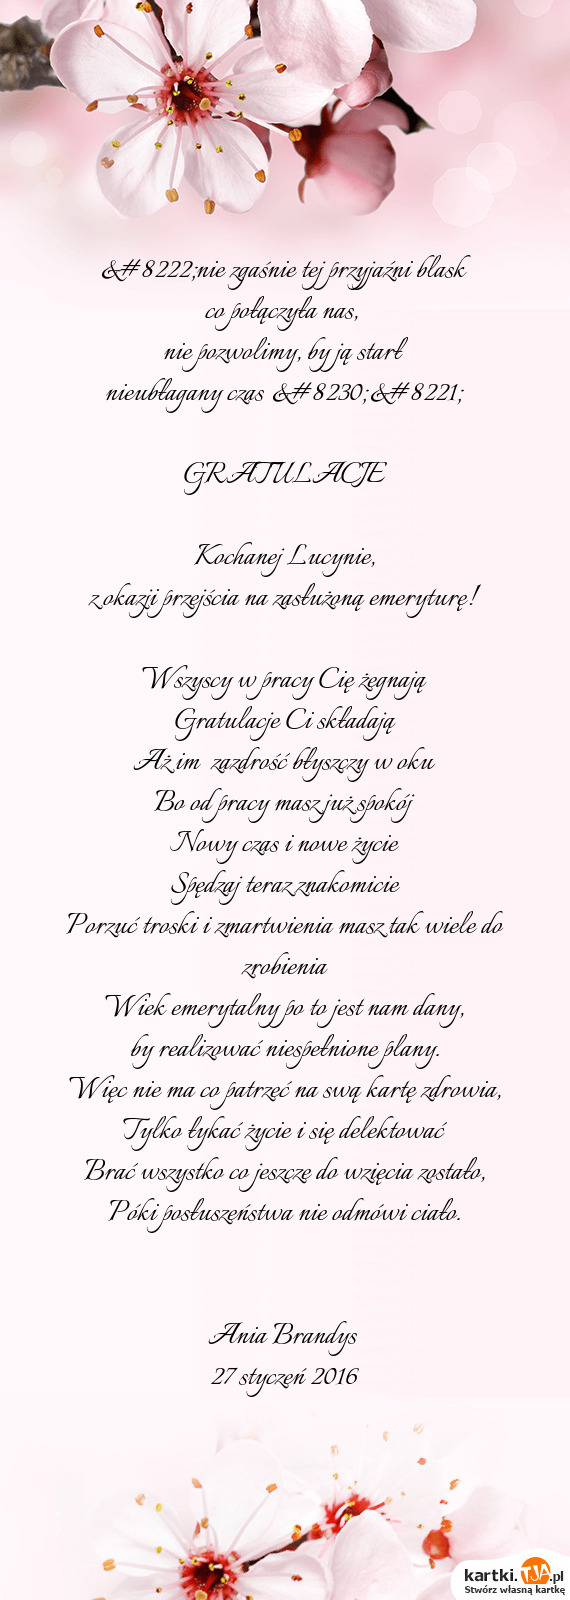 &#8222;nie zgaśnie tej przyjaźni blask
co połączyła nas,
nie pozwolimy, by ją starł
nieubłagany czas &#8230;&#8221;
GRATULACJE
Kochanej Lucynie,
z okazji przejścia na zasłużoną emeryturę!
Wszyscy w pracy Cię żegnają
Gratulacje Ci składają
Aż im zazdrość błyszczy w oku
Bo od pracy masz już spokój
Nowy czas i nowe życie
Spędzaj teraz znakomicie
Porzuć troski i zmartwienia masz tak wiele do
zrobienia
Wiek emerytalny po to jest nam dany,
by realizować niespełnione plany.
Więc nie ma co patrzeć na swą kartę zdrowia,
Tylko łykać życie i się delektować
Brać wszystko co jeszcze do wzięcia zostało,
Póki posłuszeństwa nie odmówi ciało.
Ania Brandys
27 styczeń 2016
kartki.TJA.pl
Stwórz własną kartkę